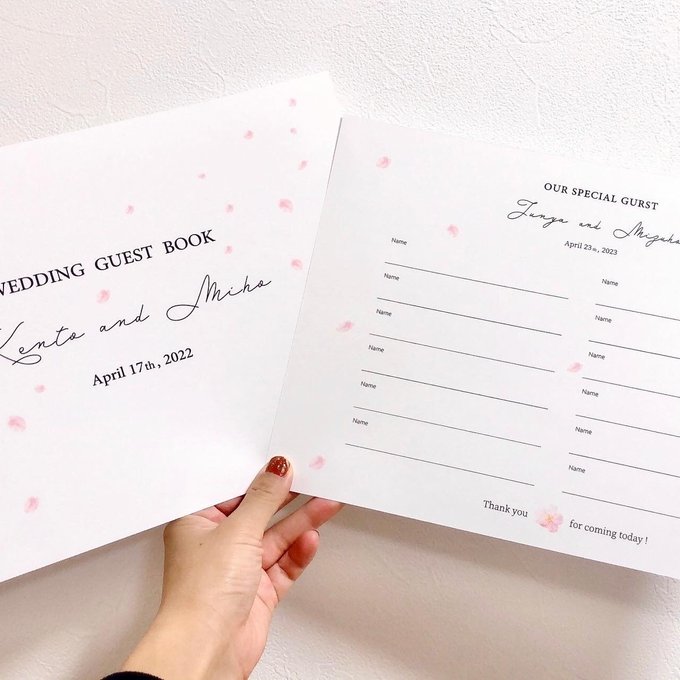 WEDDING GUEST BOOK
Kento and Miho
April 17th, 2022
OUR SPECIAL GURST
Junya and
April 23th, 2023
Name
Name
Name
Name
Name
Name
Name
Name
Name
Name
Name
Name
Thank you for coming today !